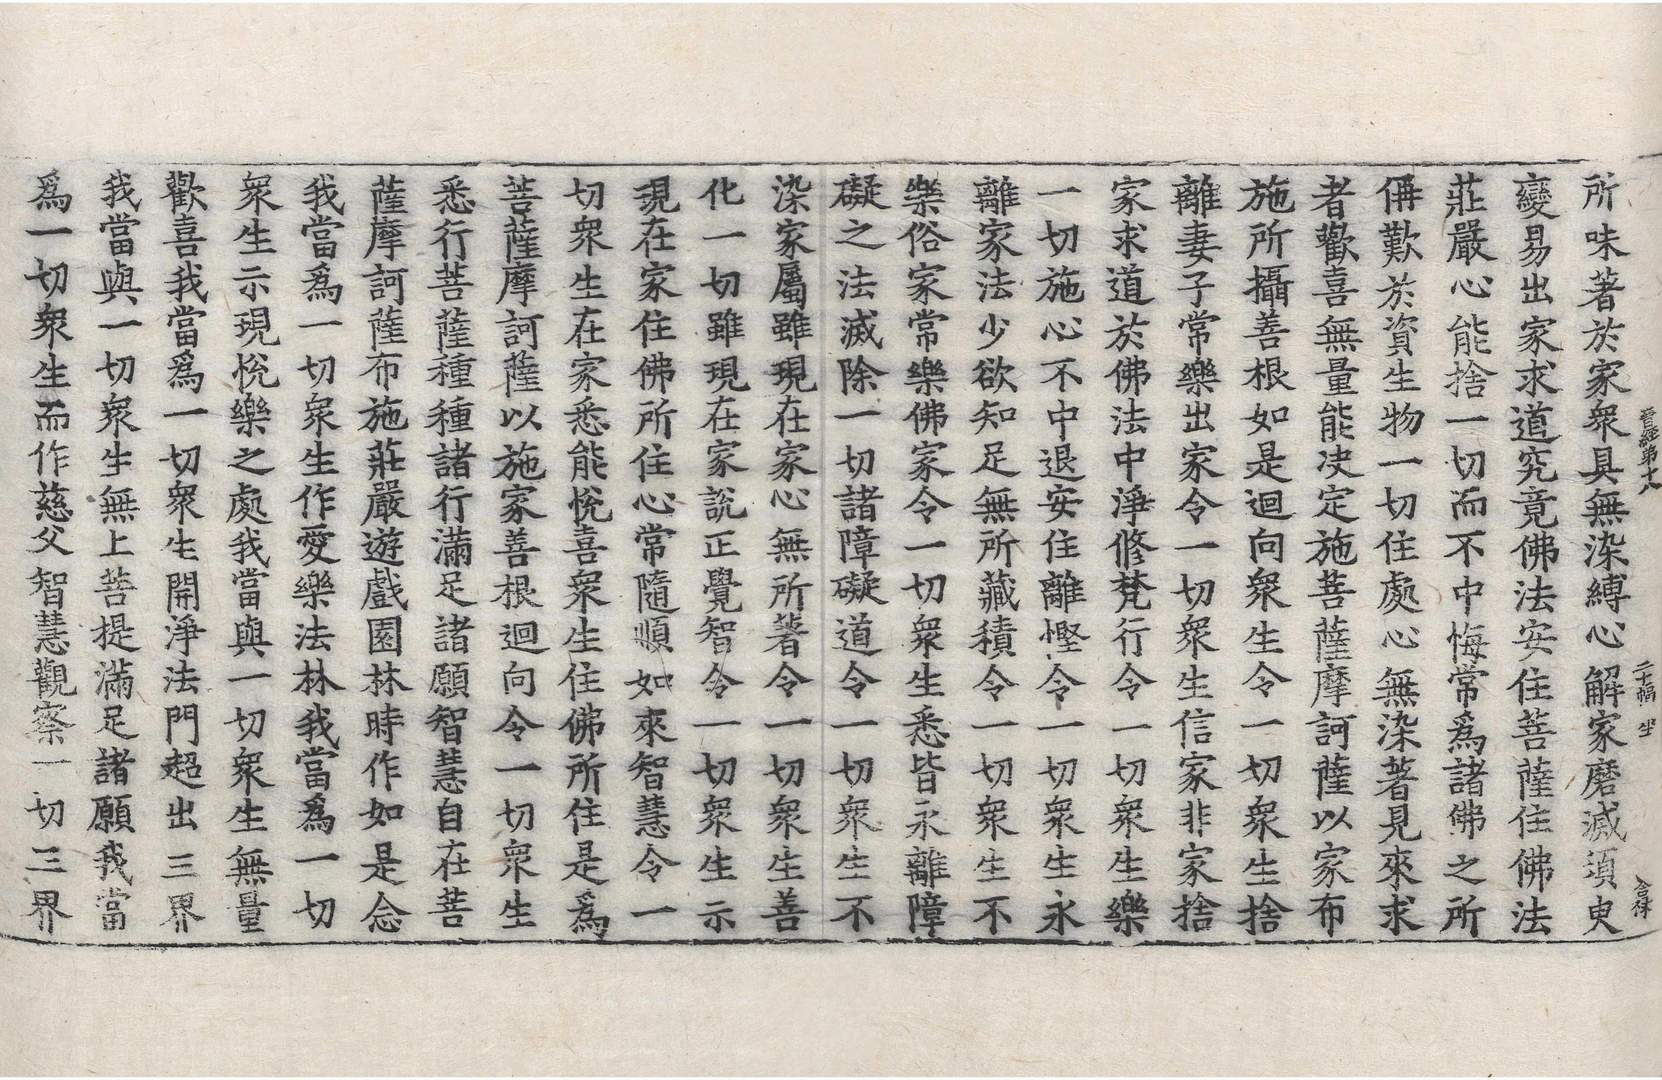 所味著於家衆具無染縛心解家磨滅須臾
變易出家求道究竟佛法安住菩薩住佛法
莊嚴心能捨一切而不中悔常為諸佛之所
偁歎於資生物一切住處心無染著見來求
者歡喜無量能决定施菩薩摩訶薩以家布
施所攝善根如是迴向衆生令一切衆生捨
離妻子常樂出家令一切衆生信家非家捨
家求道於佛法中淨修梵行令一切衆生樂
一切施心不中退安住離慳令一切衆生永
離家法少欲知足無所藏積令一切衆生不
樂俗家常樂佛家令一切衆生悉皆永離障
礙之法滅除一切諸障礙道令一切衆生不
染家屬雖現在家心無所著令一切衆生善
化一切雖現在家說正覺智令一切衆生示
現在家住佛所住心常隨順如來智慧令一
切衆生在家悉能悅喜衆生住佛所住是為
菩薩摩訶薩以施家善根迴向令一切衆生
悉行菩薩種種諸行滿足諸願智慧自在菩
薩摩訶薩布施莊嚴遊戲園林時作如是念
我當為一切衆生作愛樂法林我當為一切
衆生示現悅樂之處我當與一切衆生無量
歡喜我當為一切衆生開淨法門超出三界
我當與一切衆生無上菩提滿足諸願我當
為一切衆生而作慈父智慧觀察一切三界
晉經第十八 二十幅 坐